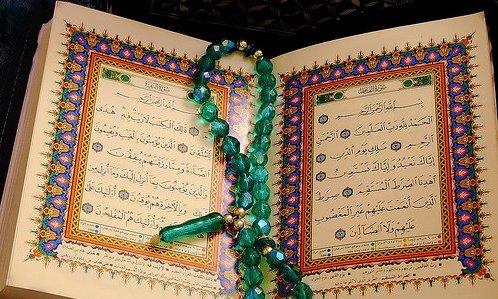 سُورَةُ الفَاتِحَةِ
بِسْمِ اللَّهِ الرَّحْمَٰنِ الرَّحِيمِ
الْحَمْدُ لِلَّهِ رَبِّ الْعَالَمِينَ الرَّحْمَٰنِ
الرَّحِيمِ مَالِكِ يَوْمِ الدِّينِ
إِيَّاكَ نَعْبُدُ وَإِيَّاكَ نَسْتَعِينُ
اهْدِنَا الصِّرَاطَ الْمُسْتَقِيمَ صِرَاطَ
الَّذِينَ أَنْعَمْتَ عَلَيْهِمْ غَيْرِ الْمَغْضُوبِ
عَلَيْهِمْ وَلَا الضَّالِّينَ
سُورَةُ البَقَرَةِ
بِسْمِ اللَّهِ الرَّحْمَٰنِ الرَّحِيمِ
الم ذَٰلِكَ الْكِتَابُ لَا رَيْبَ فِيهِ هُدًى
لِلْمُتَّقِينَ الَّذِينَ يُؤْمِنُونَ بِالْغَيْبِ وَيُقِيمُونَ
الصَّلَاةَ وَمِمَّا رَزَقْنَاهُمْ يُنْفِقُونَ
وَالَّذِينَ يُؤْمِنُونَ بِمَا أُنْزِلَ إِلَيْكَ وَمَا أُنْزِلَ مِنْ
قَبْلِكَ وَبِالْآخِرَةِ هُمْ يُوقِنُونَ أُولَٰئِكَ عَلَىٰ
هُدًى مِنْ رَبِّهِمْ وَأُولَٰئِكَ هُمُ الْمُفْلِحُونَ